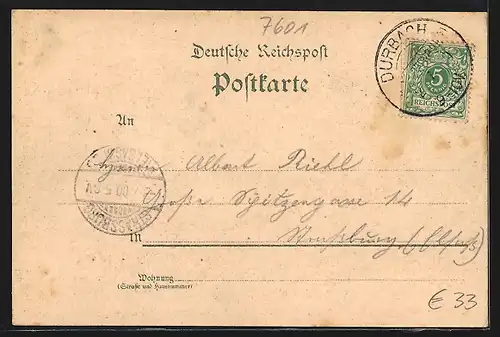 7601
Deutsche Reichspost
Postkarte
DURBACH
5
REICHSPOST
An
Albert Riehl
Große Spitzengasse 14
STRASSBURG
in Straßburg (Elsaß)
Wohnung
(Straße und Hausnummer)
€ 33